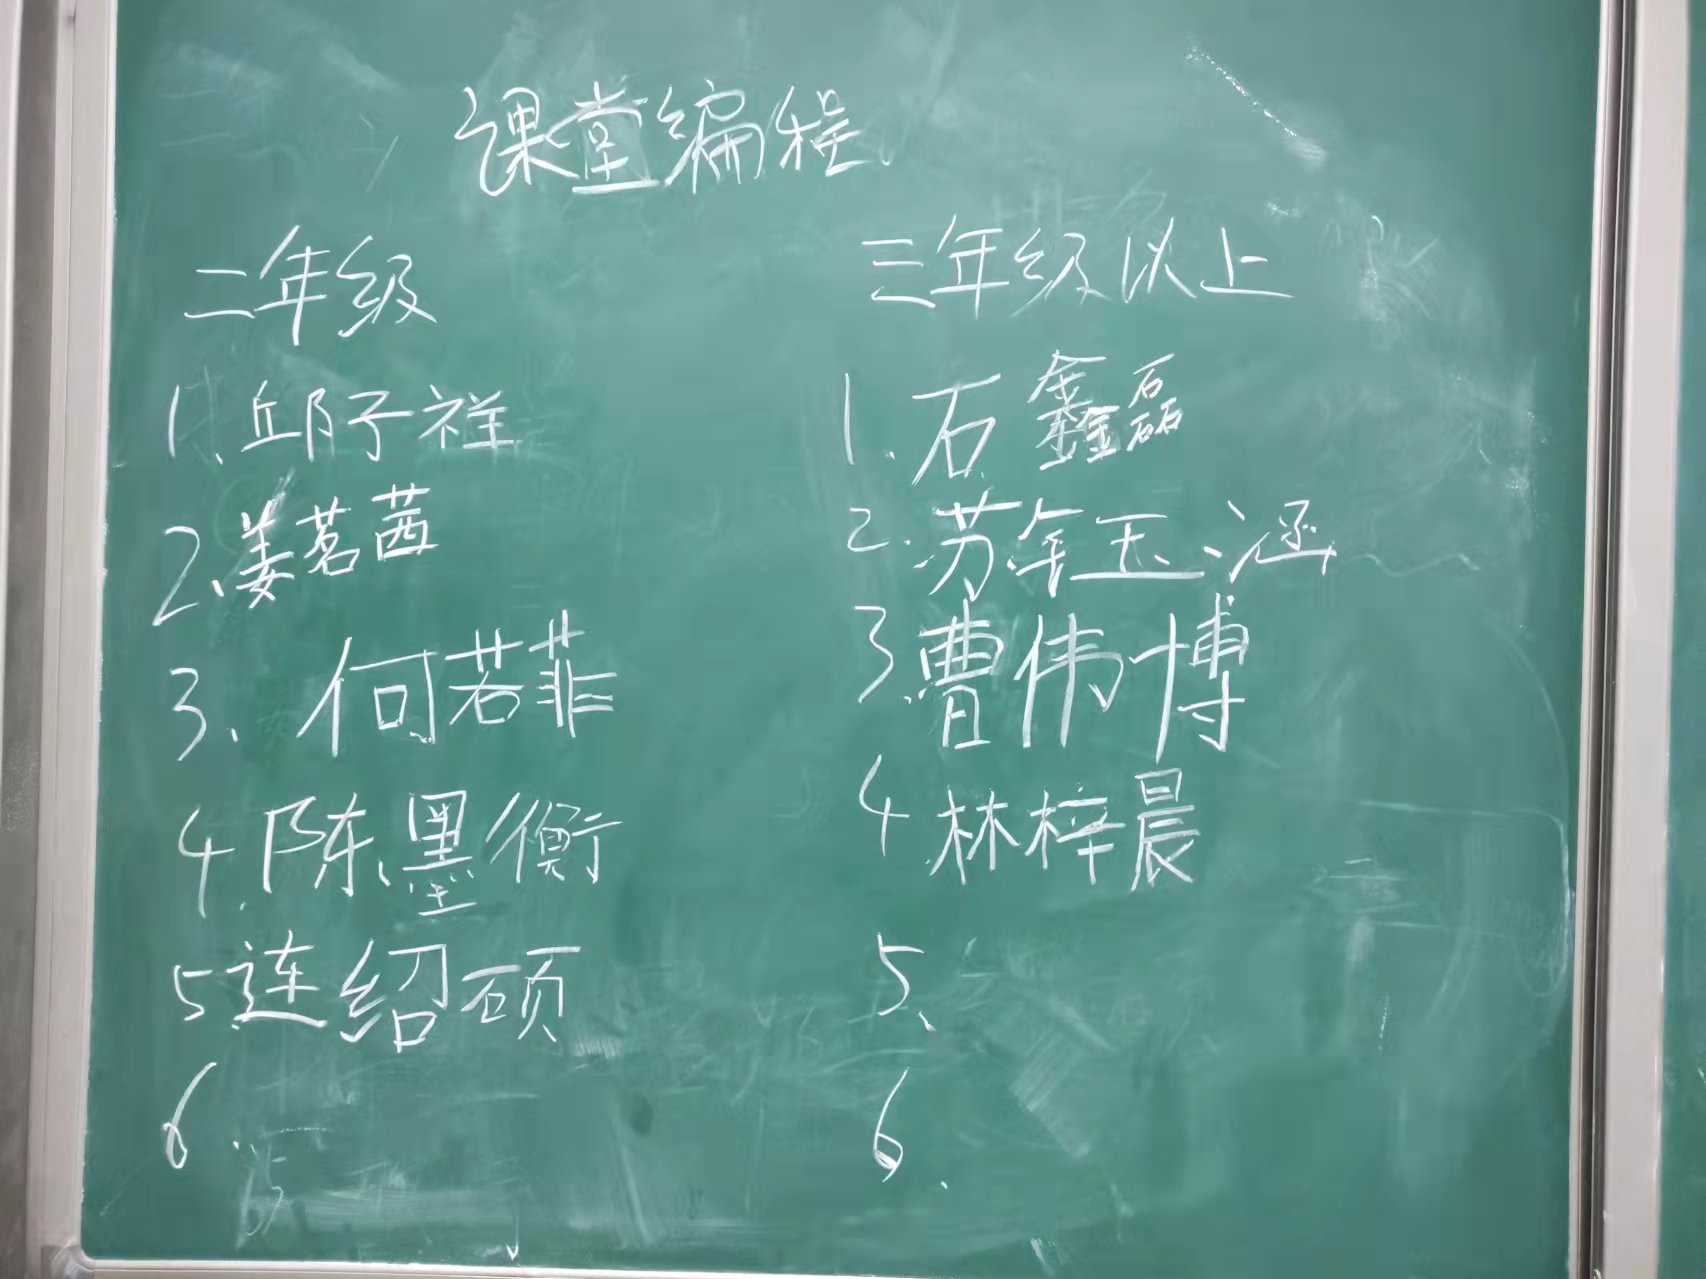 课堂编程
二年级
1、邱子祥
2、姜茗茜
3、何若菲
4.陈墨衡
5.连绍硕
6.
三年级以上
1.石鑫磊
2.苏金玉涵
3.曹伟博
4.林梓晨
5、
6.